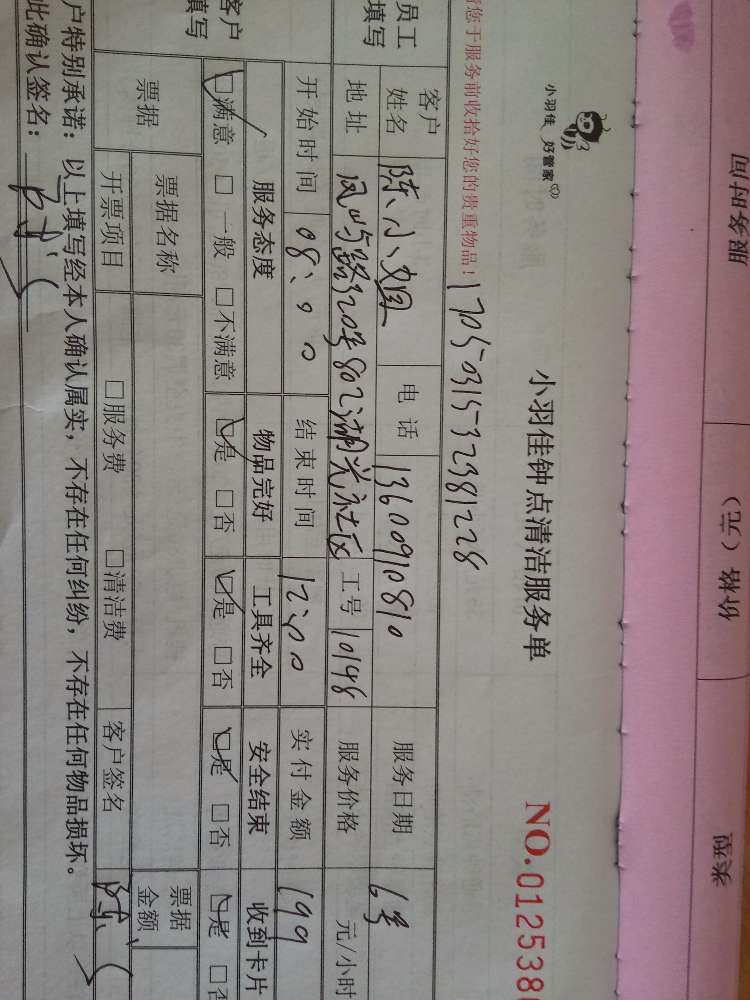 服务时间 价格（元） 类型
小羽佳 好管家
小羽佳钟点清洁服务单
NO.0125386
请您于服务前收拾好您的贵重物品！ 1705-0315-32381228
员工填写 客户姓名 陈小姐 电话 13600910810 服务日期 6号
地址 凤屿路320号802湖光社区 工号 10148 服务价格 元/小时
开始时间 08:00 结束时间 12:00 实付金额 199
客户填写 服务态度 物品完好 工具齐全 安全结束 收到卡片
☑满意 □一般 □不满意 ☑是 □否 ☑是 □否 ☑是 □否 ☑是 □否
票据 票据名称 票据金额
开票项目 □服务费 □清洁费 客户签名 陈
户特别承诺：以上填写经本人确认属实，不存在任何纠纷，不存在任何物品损坏。
此确认签名：